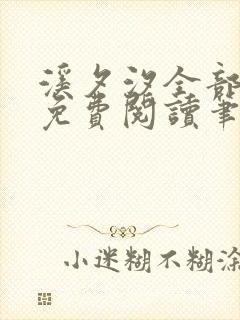 溪夕汐全部
免費閱讀筆
小迷糊不糊涂